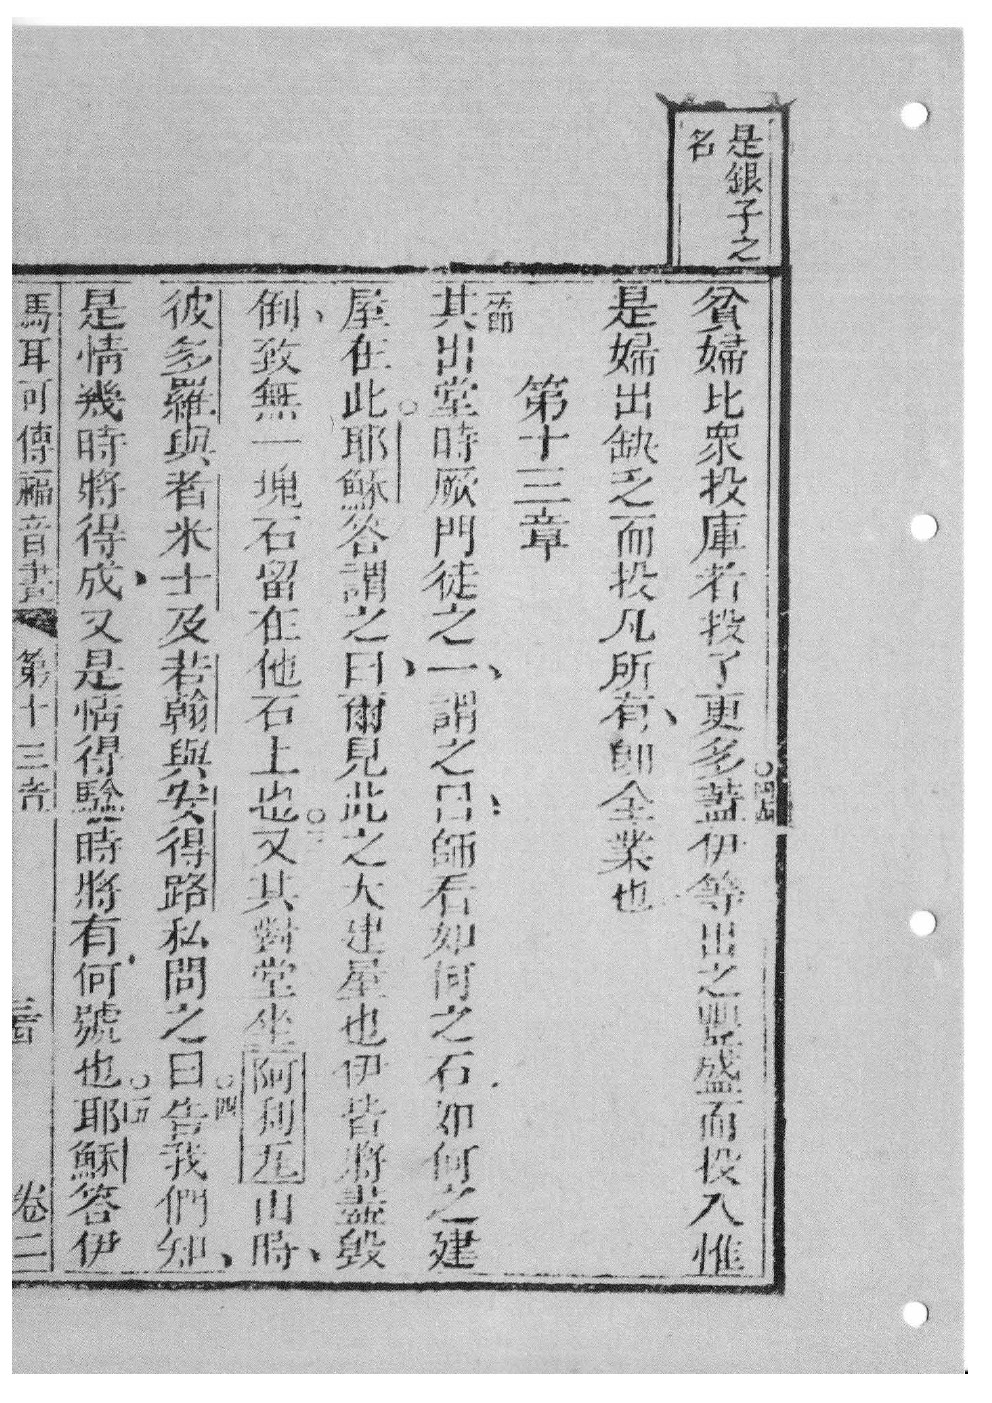 是銀子之
名
貧婦比衆投庫若投了更多蓋伊等出之豐盛而投入惟
是婦出缺乏而投凡所有、卽全業也
第十三章
一節
其出堂時厥門徒之一、謂之曰、師看如何之石如何之建
屋在此○耶穌答謂之曰、爾見此之大建屋也伊皆將盡毀
倒、致無一塊石留在他石上也○三又其對堂坐阿利瓦山時、
彼多羅與者米士及若翰與安得路私問之曰○四告我們知、
是情幾時將得成、又是情得騐時將有何號也○五耶穌答伊
馬耳可傳福音書 第十三章 卷二